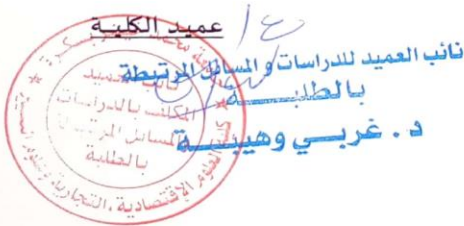 عميد الكليـة
ع/
نائب العميد للدراسات و المسائل المرتبطة
بالطلبــــــة
د. غربــي وهيبــــة
نائب العميد
المكلف بالدراسات
والمسائل المرتبطة
بالطلبة
العلوم الإقتصادية، التجارية وعلوم التسيير